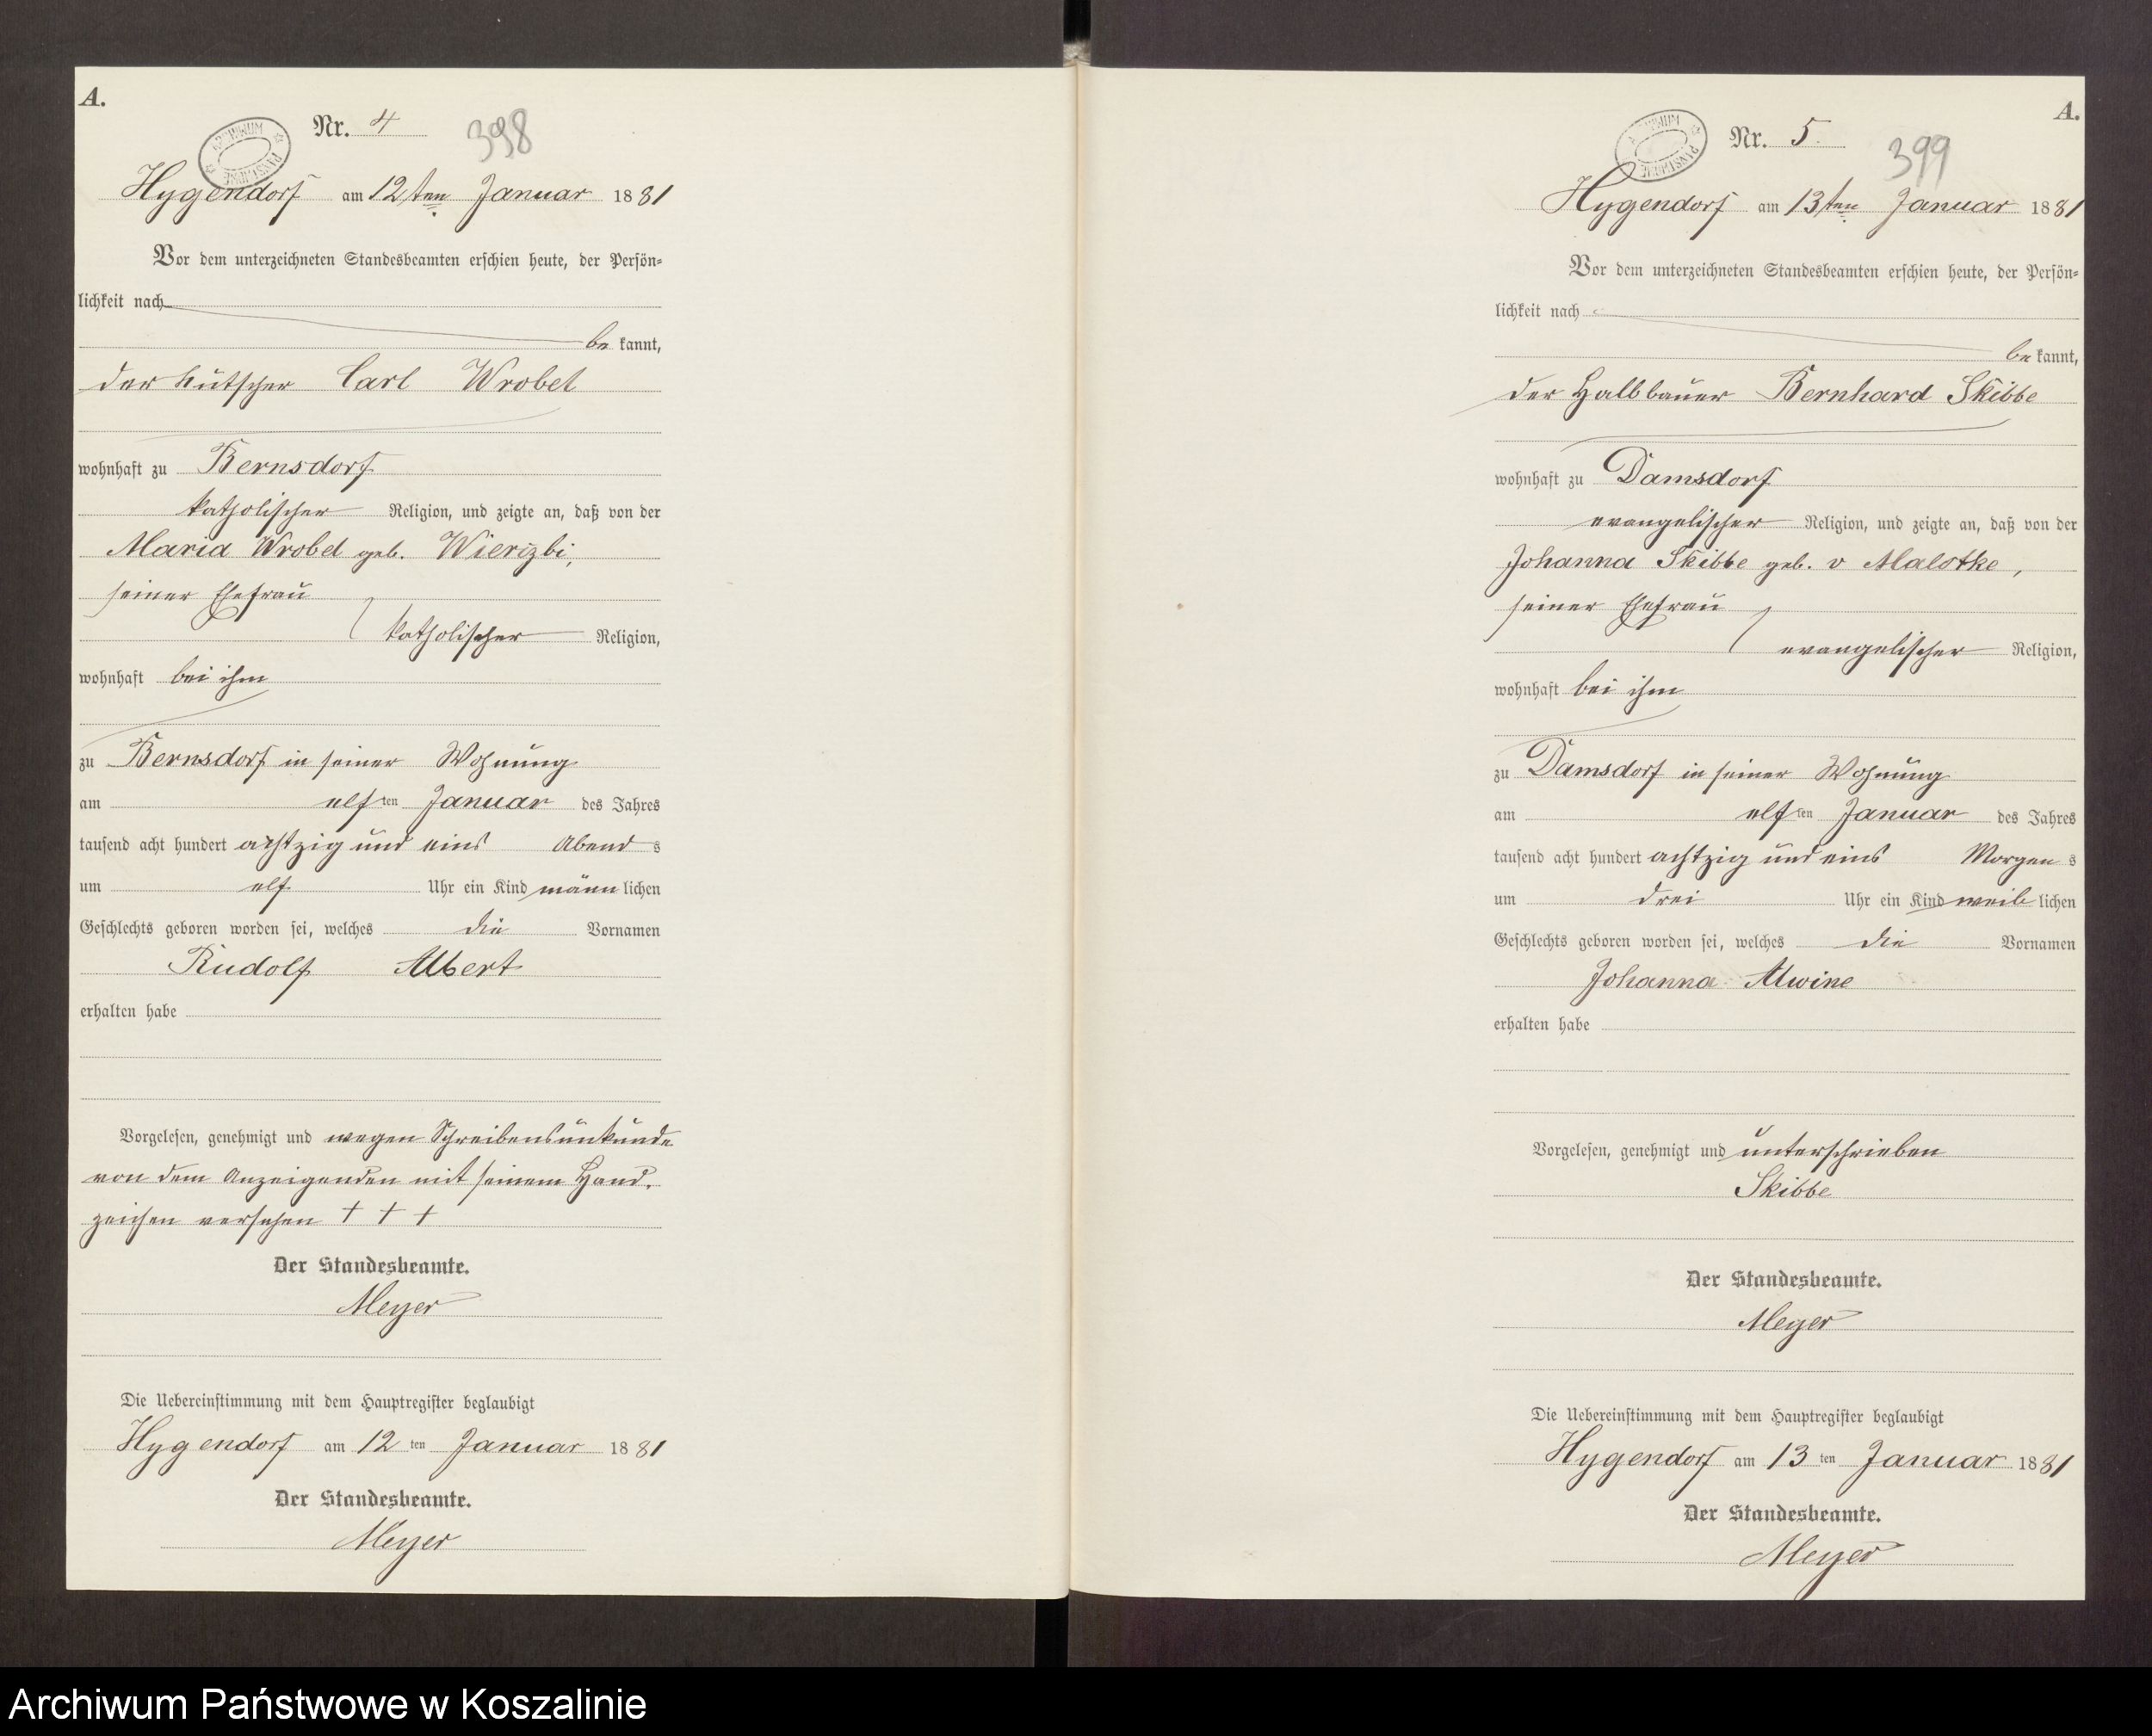 A.
Nr. 4
398
ARCHIWUM PAŃSTWOWE
Hygendorf am 12ten Januar 1881
Vor dem unterzeichneten Standesbeamten erschien heute, der Persön-
lichkeit nach
be kannt,
der Kutscher Carl Wrobel
wohnhaft zu Bernsdorf
katholischer Religion, und zeigte an, daß von der
Maria Wrobel geb. Wierzbi,
seiner Ehefrau
katholischer Religion,
wohnhaft bei ihm
zu Bernsdorf in seiner Wohnung
am elf ten Januar des Jahres
tausend acht hundert achtzig und eins Abend s
um elf Uhr ein Kind männ lichen
Geschlechts geboren worden sei, welches die Vornamen
Rudolf Albert
erhalten habe
Vorgelesen, genehmigt und wegen Schreibensunkunde
von dem Anzeigenden mit seinem Hand-
zeichen versehen + + +
Der Standesbeamte.
Meyer
Die Uebereinstimmung mit dem Hauptregister beglaubigt
Hygendorf am 12 ten Januar 1881
Der Standesbeamte.
Meyer
A.
Nr. 5.
399
ARCHIWUM PAŃSTWOWE
Hygendorf am 13ten Januar 1881
Vor dem unterzeichneten Standesbeamten erschien heute, der Persön-
lichkeit nach
be kannt,
der Halbbauer Bernhard Skibbe
wohnhaft zu Damsdorf
evangelischer Religion, und zeigte an, daß von der
Johanna Skibbe geb. v Malotke,
seiner Ehefrau
evangelischer Religion,
wohnhaft bei ihm
zu Damsdorf in seiner Wohnung
am elf ten Januar des Jahres
tausend acht hundert achtzig und eins Morgen s
um drei Uhr ein Kind weib lichen
Geschlechts geboren worden sei, welches die Vornamen
Johanna Alwine
erhalten habe
Vorgelesen, genehmigt und unterschrieben
Skibbe
Der Standesbeamte.
Meyer
Die Uebereinstimmung mit dem Hauptregister beglaubigt
Hygendorf am 13 ten Januar 1881
Der Standesbeamte.
Meyer
Archiwum Państwowe w Koszalinie